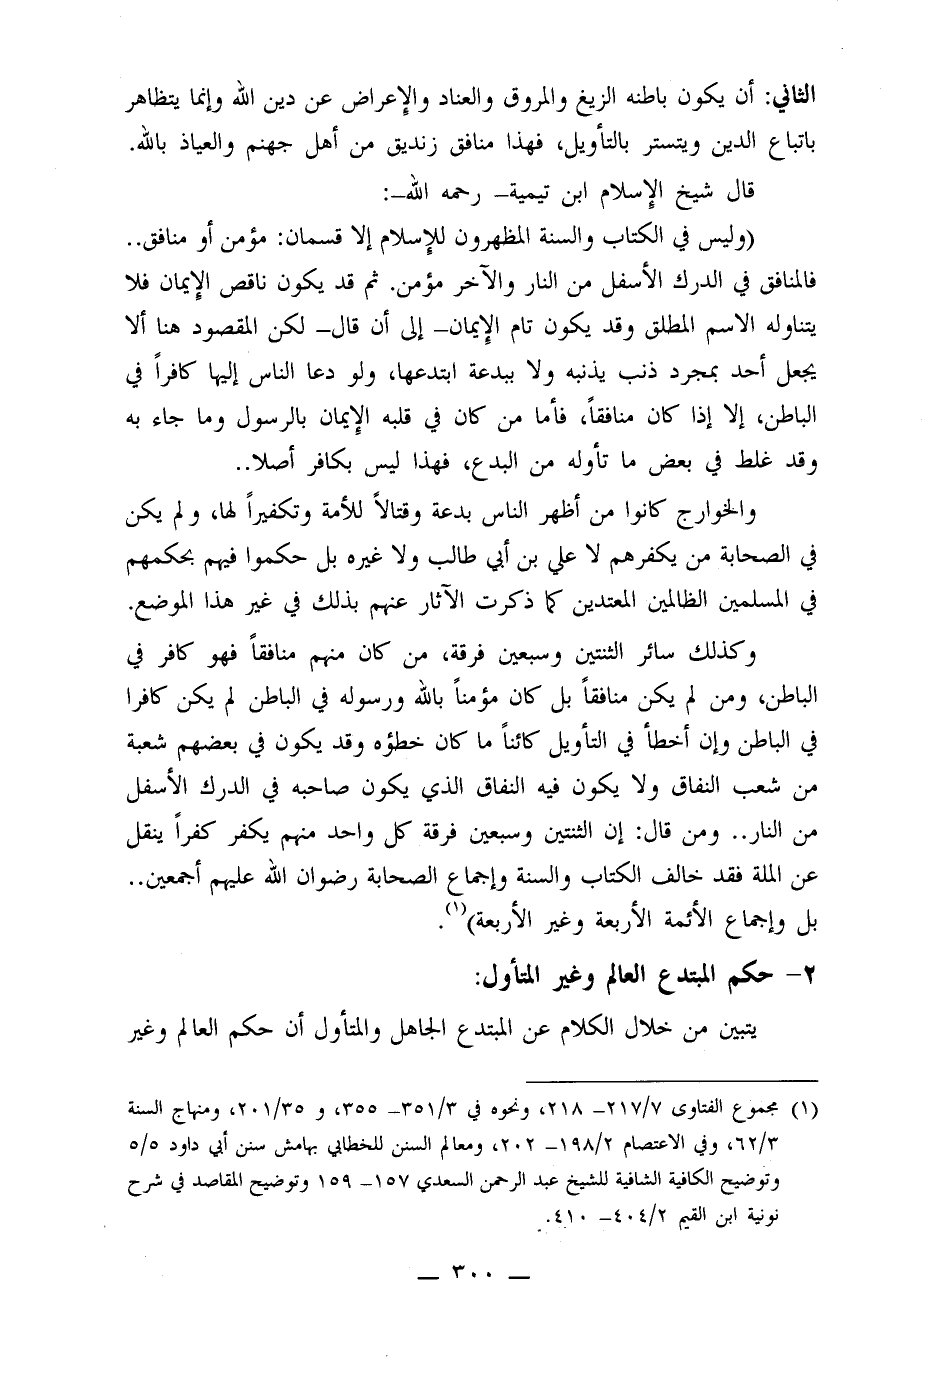 الثاني: أن يكون باطنه الزيغ والمروق والعناد والإعراض عن دين الله وإنما يتظاهر
باتباع الدين ويتستر بالتأويل، فهذا منافق زنديق من أهل جهنم والعياذ بالله.
قال شيخ الإسلام ابن تيمية– رحمه الله–:
(وليس في الكتاب والسنة المظهرون للإسلام إلا قسمان: مؤمن أو منافق..
فالمنافق في الدرك الأسفل من النار والآخر مؤمن. ثم قد يكون ناقص الإيمان فلا
يتناوله الاسم المطلق وقد يكون تام الإيمان– إلى أن قال– لكن المقصود هنا ألا
يجعل أحد بمجرد ذنب يذنبه ولا ببدعة ابتدعها، ولو دعا الناس إليها كافراً في
الباطن، إلا إذا كان منافقاً، فأما من كان في قلبه الإيمان بالرسول وما جاء به
وقد غلط في بعض ما تأوله من البدع، فهذا ليس بكافر أصلا..
والخوارج كانوا من أظهر الناس بدعة وقتالاً للأمة وتكفيراً لها، ولم يكن
في الصحابة من يكفرهم لا علي بن أبي طالب ولا غيره بل حكموا فيهم بحكمهم
في المسلمين الظالمين المعتدين كما ذكرت الآثار عنهم بذلك في غير هذا الموضع.
وكذلك سائر الثنتين وسبعين فرقة، من كان منهم منافقاً فهو كافر في
الباطن، ومن لم يكن منافقاً بل كان مؤمناً بالله ورسوله في الباطن لم يكن كافرا
في الباطن وإن أخطأ في التأويل كائناً ما كان خطؤه وقد يكون في بعضهم شعبة
من شعب النفاق ولا يكون فيه النفاق الذي يكون صاحبه في الدرك الأسفل
من النار.. ومن قال: إن الثنتين وسبعين فرقة كل واحد منهم يكفر كفراً ينقل
عن الملة فقد خالف الكتاب والسنة وإجماع الصحابة رضوان الله عليهم أجمعين..
بل وإجماع الأئمة الأربعة وغير الأربعة)(١).
٢– حكم المبتدع العالم وغير المتأول:
يتبين من خلال الكلام عن المبتدع الجاهل والمتأول أن حكم العالم وغير
(١) مجموع الفتاوى ٢١٧/٧– ٢١٨، ونحوه في ٣٥١/٣– ٣٥٥، و ٢٠١/٣٥، ومنهاج السنة
٦٢/٣، وفي الاعتصام ١٩٨/٢– ٢٠٢، ومعالم السنن للخطابي بهامش سنن أبي داود ٥/٥
وتوضيح الكافية الشافية للشيخ عبد الرحمن السعدي ١٥٧– ١٥٩ وتوضيح المقاصد في شرح
نونية ابن القيم ٤٠٤/٢– ٤١٠.
– ٣٠٠ –